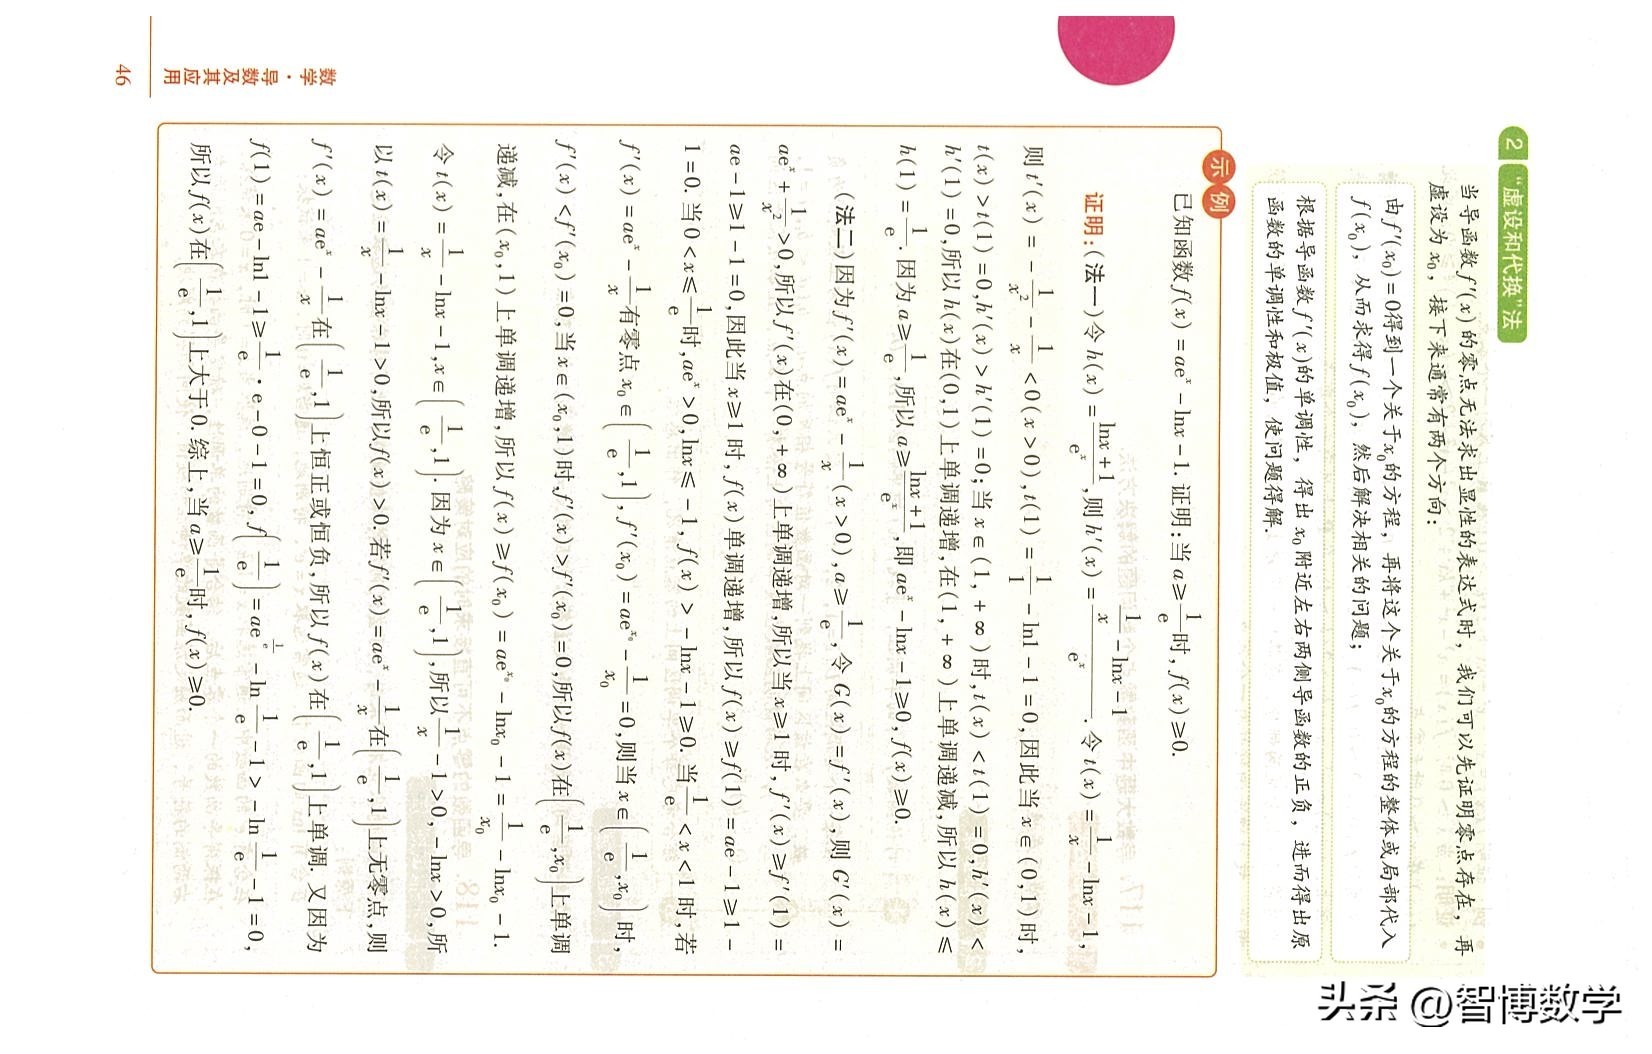 2 “虚设和代换”法
当导函数f′(x)的零点无法求出显性的表达式时，我们可以先证明零点存在，再
虚设为x₀，接下来通常有两个方向：
由f′(x₀)=0得到一个关于x₀的方程，再将这个关于x₀的方程的整体或局部代入
f(x₀)，从而求得f(x₀)，然后解决相关的问题；
根据导函数f′(x)的单调性，得出x₀附近左右两侧导函数的正负，进而得出原
函数的单调性和极值，使问题得解.
示例
已知函数f(x)=aeˣ-lnx-1.证明:当a≥1/e时,f(x)≥0.
证明:(法一)令h(x)=(lnx+1)/eˣ,则h′(x)=(1/x-lnx-1)/eˣ.令t(x)=1/x-lnx-1,
则t′(x)=-1/x²-1/x<0(x>0),t(1)=1/1-ln1-1=0,因此当x∈(0,1)时,
t(x)>t(1)=0,h′(x)>h′(1)=0;当x∈(1,+∞)时,t(x)<t(1)=0,h′(x)<
h′(1)=0,所以h(x)在(0,1)上单调递增,在(1,+∞)上单调递减,所以h(x)≤
h(1)=1/e.因为a≥1/e,所以a≥(lnx+1)/eˣ,即aeˣ-lnx-1≥0,f(x)≥0.
(法二)因为f′(x)=aeˣ-1/x(x>0),a≥1/e,令G(x)=f′(x),则G′(x)=
aeˣ+1/x²>0,所以f′(x)在(0,+∞)上单调递增,所以当x≥1时,f′(x)≥f′(1)=
ae-1≥1-1=0,因此当x≥1时,f(x)单调递增,所以f(x)≥f(1)=ae-1≥1-
1=0.当0<x≤1/e时,aeˣ>0,lnx≤-1,f(x)>-lnx-1≥0.当1/e<x<1时,若
f′(x)=aeˣ-1/x有零点x₀∈(1/e,1),f′(x₀)=ae^(x₀)-1/x₀=0,则当x∈(1/e,x₀)时,
f′(x)<f′(x₀)=0,当x∈(x₀,1)时,f′(x)>f′(x₀)=0,所以f(x)在(1/e,x₀)上单调
递减,在(x₀,1)上单调递增,所以f(x)≥f(x₀)=ae^(x₀)-lnx₀-1=1/x₀-lnx₀-1.
令t(x)=1/x-lnx-1,x∈(1/e,1).因为x∈(1/e,1),所以1/x-1>0,-lnx>0,所
以t(x)=1/x-lnx-1>0,所以f(x)>0.若f′(x)=aeˣ-1/x在(1/e,1)上无零点,则
f′(x)=aeˣ-1/x在(1/e,1)上恒正或恒负,所以f(x)在(1/e,1)上单调.又因为
f(1)=ae-ln1-1≥1/e·e-0-1=0,f(1/e)=ae^(1/e)-ln1/e-1>-ln1/e-1=0,
所以f(x)在(1/e,1)上大于0.综上,当a≥1/e时,f(x)≥0.
数学·导数及其应用
46
头条 @智博数学